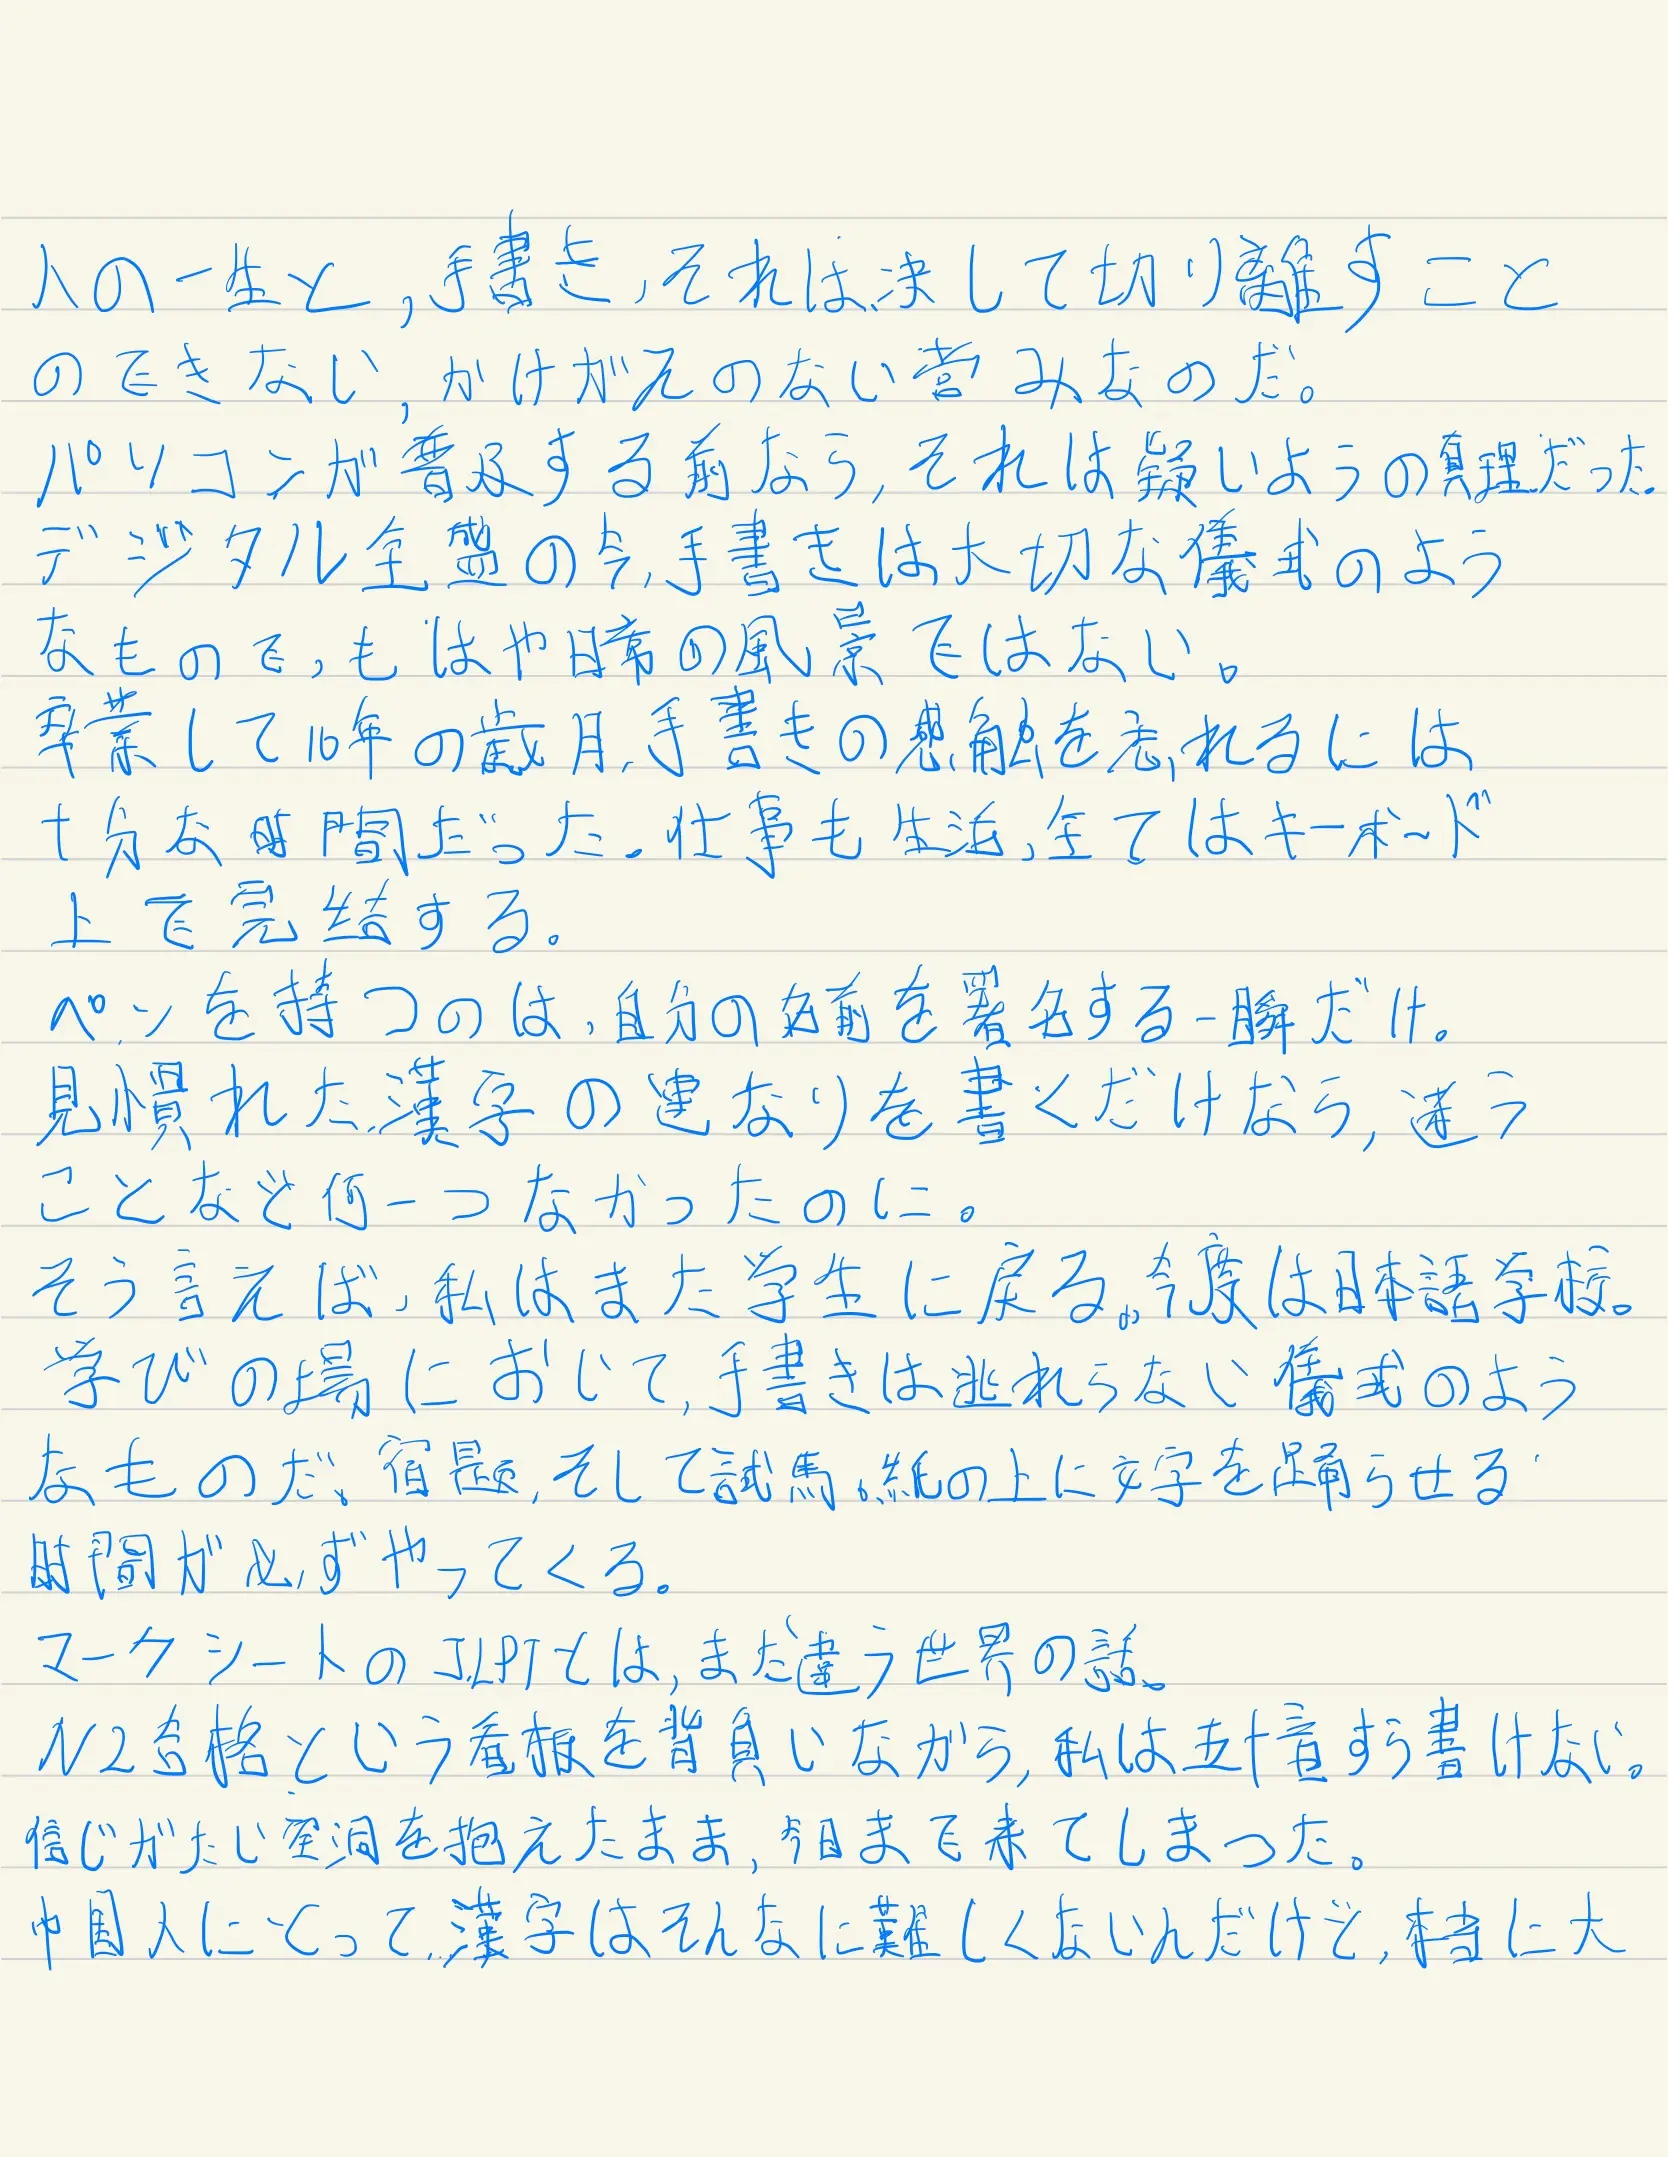 人の一生と,手書き,それは決して切り離すこと
のできない,かけがえのない営みなのだ。
パソコンが普及する前なら,それは疑いようの真理だった.
デジタル全盤の今,手書きは大切な儀式のよう
なもので,もはや日常の風景ではない。
卒業して10年の歳月,手書きの感触を忘れるには
十分な時間だった.仕事も生活,全てはキーボード
上で完結する。
ペンを持つのは,自分の名前を署名する一瞬だけ。
見慣れた漢字の連なりを書くだけなら,迷う
ことなど何一つなかったのに。
そう言えば,私はまた学生に戻る。今度は日本語学校。
学びの場において,手書きは逃れらない儀式のよう
なものだ、宿題,そして試馬。紙の上に文字を踊らせる
時間が必ずやってくる。
マークシートのJLPTとは,まだ違う世界の話。
N2合格という看板を背負いながら,私は五十音すら書けない。
信じがたい空洞を抱えたまま,今日まで来てしまった。
中国人にとって,漢字はそんなに難しくないんだけど,本当に大